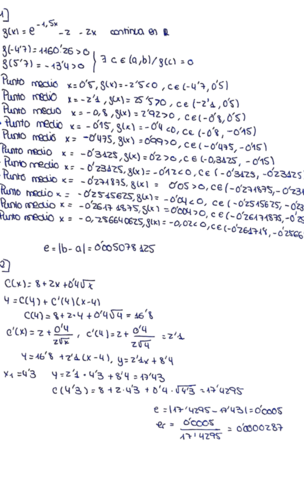 1)
g(x) = e^-1,5x - 2 - 2x continua en R
g(-4'7) = 1160'26 > 0
g(5'7) = -13'4 > 0 } ∃ c ∈ (a,b) / g(c) = 0
Punto medio x = 0'5, g(x) = -2'5 < 0, c ∈ (-4'7, 0'5)
Punto medio x = -2'1, g(x) = 25'5 > 0, c ∈ (-2'1, 0'5)
Punto medio x = -0,8, g(x) = 2'92 > 0, c ∈ (-0'8, 0'5)
Punto medio x = -0'15, g(x) = -0'4 < 0, c ∈ (-0'8, -0'15)
Punto medio x = -0'475, g(x) = 0'99 > 0, c ∈ (-0'475, -0'15)
Punto medio x = -0'3125, g(x) = 0'2 > 0, c ∈ (-0,3125, -0'15)
Punto medio x = -0'23125, g(x) = -0'12 < 0, c ∈ (-0'3125, -0'23125)
Punto medio x = -0'271875, g(x) = 0'05 > 0, c ∈ (-0'271875, -0'231
Punto medio x = -0'2515625, g(x) = -0'04 < 0, c ∈ (-0'2515625, -0'23
Punto medio x = -0'26171875, g(x) = 0'004 > 0, c ∈ (-0'26171875, -0'25
Punto medio x = -0,256640625, g(x) = -0,02 < 0, c ∈ (-0'261718, -0'25664
e = |b - a| = 0'005078125
2)
C(x) = 8 + 2x + 0'4√x
y = C(4) + C'(4)(x-4)
C(4) = 8 + 2·4 + 0'4√4 = 16'8
C'(x) = 2 + 0'4/2√x, C'(4) = 2 + 0'4/2√4 = 2'1
y = 16'8 + 2'1(x-4), y = 2'1x + 8'4
x₁ = 4'3 y = 2'1·4'3 + 8'4 = 17'43
C(4'3) = 8 + 2·4'3 + 0'4·√4'3 = 17'4295
e = |17'4295 - 17'43| = 0'0005
eᵣ = 0'0005/17'4295 = 0'0000287